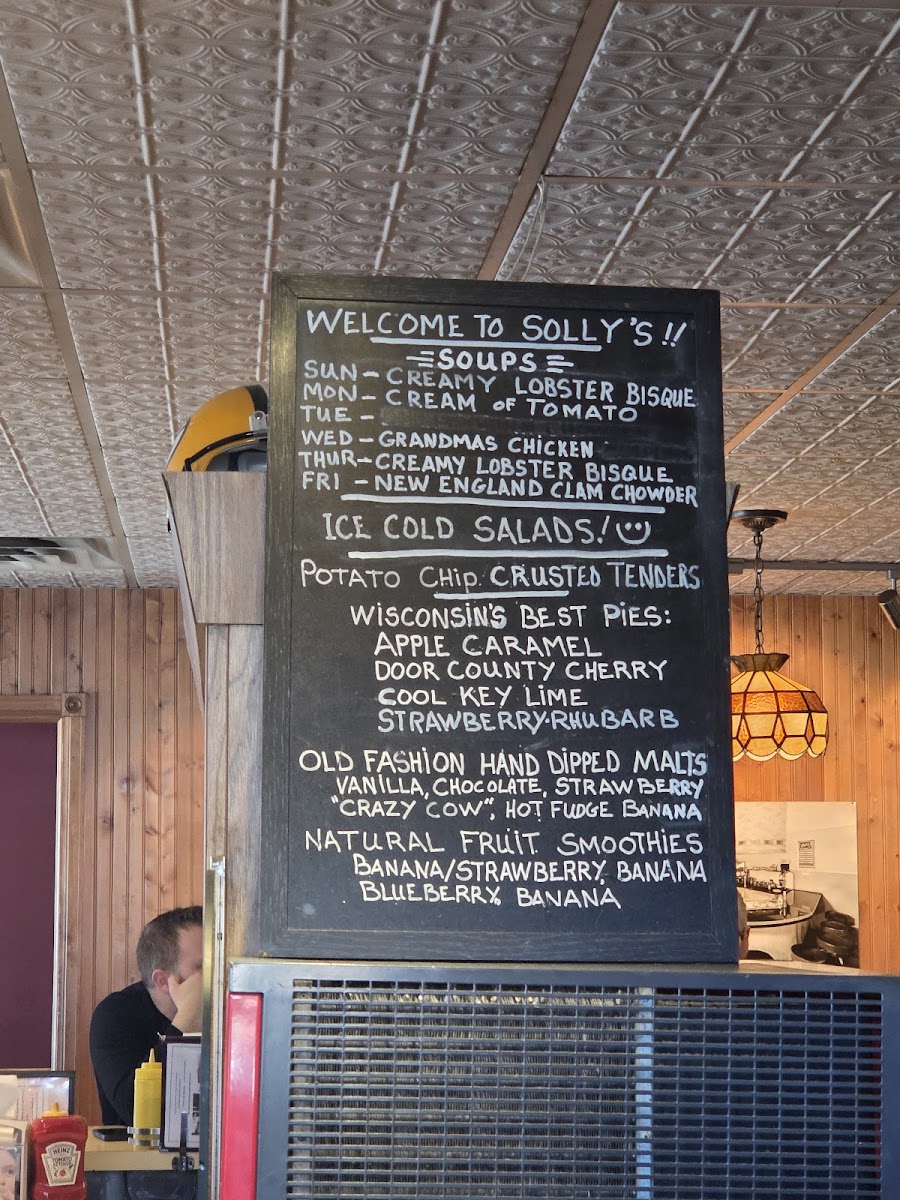 WELCOME TO SOLLY'S!!
SOUPS
SUN - CREAMY LOBSTER BISQUE
MON - CREAM OF TOMATO
TUE -
WED - GRANDMAS CHICKEN
THUR - CREAMY LOBSTER BISQUE
FRI - NEW ENGLAND CLAM CHOWDER
ICE COLD SALADS!
POTATO CHIP CRUSTED TENDERS
WISCONSIN'S BEST PIES:
APPLE CARAMEL
DOOR COUNTY CHERRY
COOL KEY LIME
STRAWBERRY-RHUBARB
OLD FASHION HAND DIPPED MALTS
VANILLA, CHOCOLATE, STRAWBERRY
"CRAZY COW", HOT FUDGE BANANA
NATURAL FRUIT SMOOTHIES
BANANA/STRAWBERRY, BANANA
BLUEBERRY, BANANA
HEINZ
TOMATO
KETCHUP